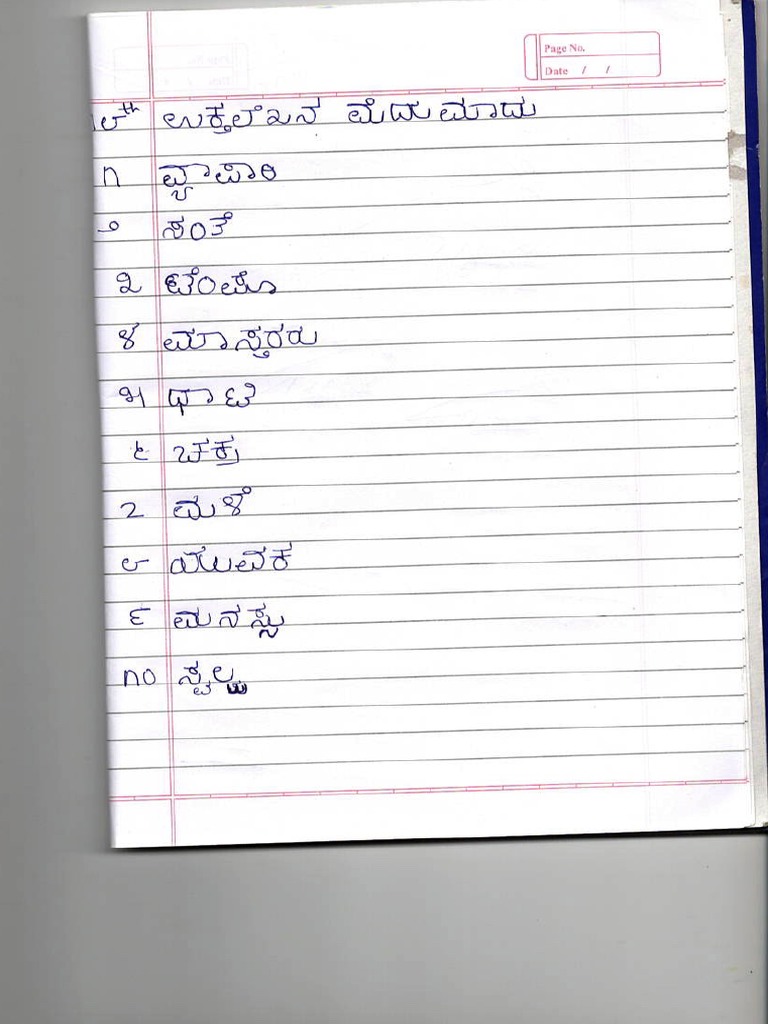 Page No.
Date / /
೮th ಉಕ್ತಲೇಖನ
೧ ವ್ಯಾಪಾರಿ
೨ ಸಂತೆ
೩ ಟೆಂಪೊ
೪ ಮಾಸ್ತರರು
೫ ಧಾಟಿ
೬ ಚಕ್ರ
೭ ಮಳೆ
೮ ಯುವಕ
೯ ಮನಸ್ಸು
೧೦ ಸ್ವಲ್ಪ